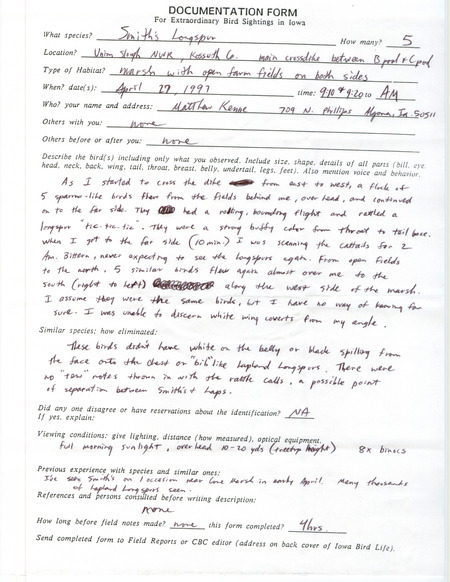 DOCUMENTATION FORM
For Extraordinary Bird Sightings in Iowa
What species? Smith's Longspur How many? 5
Location? Union Slough NWR, Kossuth Co. main crossdike between B pool & C pool
Type of Habitat? marsh with open farm fields on both sides
When? date(s): April 27, 1997 time: 9:10 & 9:20 to AM
Who? your name and address: Matthew Kenne 709 N. Phillips Algona, Ia 50511
Others with you: none
Others before or after you: none
Describe the bird(s) including only what you observed. Include size, shape, details of all parts (bill, eye,
head, neck, back, wing, tail, throat, breast, belly, undertail, legs, feet). Also mention voice and behavior.
As I started to cross the dike from east to west, a flock of
5 sparrow-like birds flew from the fields behind me, over head, and continued
on to the far side. They had a rolling, bounding flight and rattled a
longspur "tic-tic-tic". They were a strong buffy color from throat to tail base.
When I got to the far side (10 min.) I was scanning the cattails for 2
Am. Bittern, never expecting to see the longspurs again. From open fields
to the north, 5 similar birds flew again almost over me to the
south (right to left) along the west side of the marsh.
I assume they were the same birds, but I have no way of knowing for
sure. I was unable to discern white wing coverts from my angle.
Similar species; how eliminated:
These birds didn't have white on the belly or black spilling from
the face onto the chest or "bib" like Lapland Longspurs. There were
no "tew" notes thrown in with the rattle calls, a possible point
of separation between Smith's & Laps.
Did any one disagree or have reservations about the identification? NA
If yes, explain:
Viewing conditions: give lighting, distance (how measured), optical equipment.
full morning sunlight, overhead 10-20 yds (treetop height) 8x binocs
Previous experience with species and similar ones:
I've seen Smith's on 1 occasion near Marsh in early April. Many thousands
of Lapland Longspurs seen.
References and persons consulted before writing description:
none
How long before field notes made? none this form completed? 4 hrs.
Send completed form to Field Reports or CBC editor (address on back cover of Iowa Bird Life).